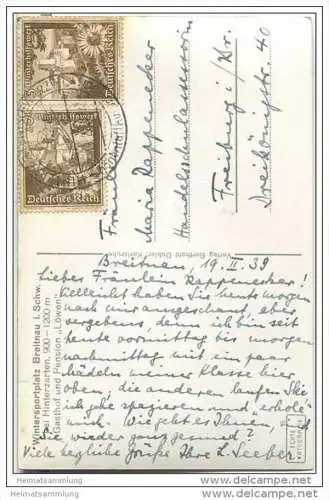 Winterhilfswerk
Deutsches Reich
Winterhilfswerk
Deutsches Reich
Fräulein
Maria Rappenecker
Handelsschulassessorin
Freiburg i/Br.
Dreikönigstr. 40
Verlag Berthold
Karlsruhe
Wintersportplatz Breitnau i. Schw.
bei Hinterzarten, 900-1200 m
Gasthof und Pension „Löwen"
Breitnau, 19. II. 39
Liebes Fräulein Rappenecker!
Vielleicht haben Sie heute morgen
nach mir ausgeschaut, aber
vergebens, denn ich bin seit
heute vormittag bis morgen
nachmittag mit ein paar
Mädeln meiner Klasse hier
oben, die anderen laufen Ski
ich gehe spazieren und "erhole"
mich. Wie geht es Ihnen, sind
Sie wieder ganz gesund?
Viele herzliche Grüße Ihre L. Seeber.
Heimatsammlung.de
Heimatsammlung.de